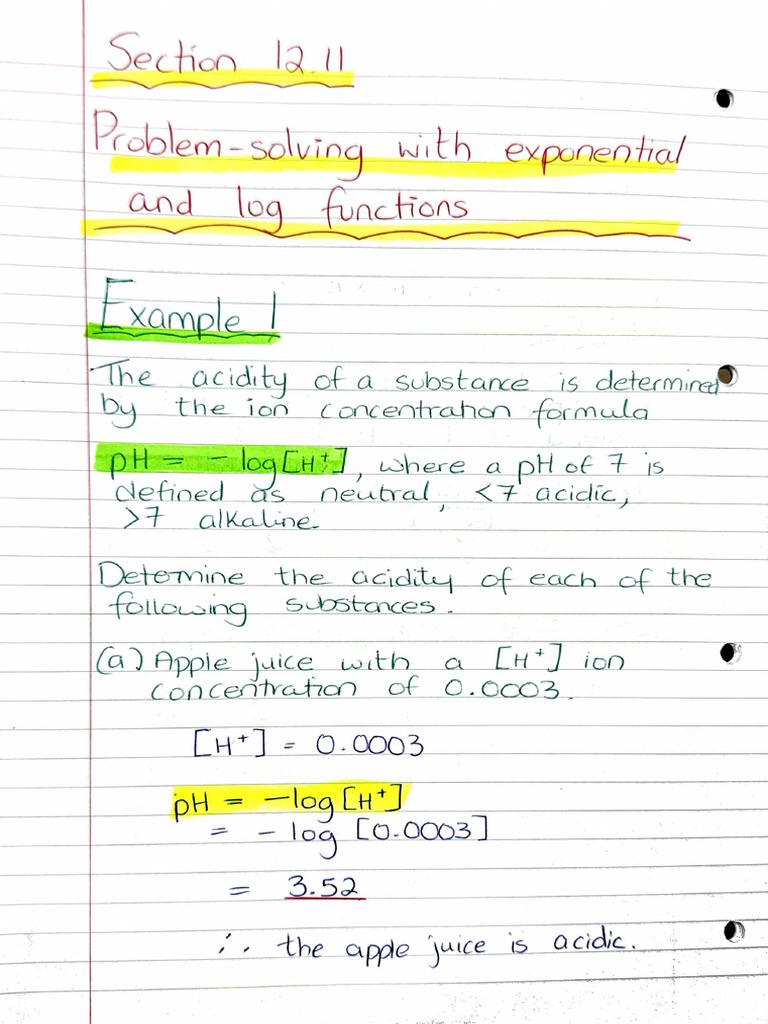 Section 12.11
Problem-solving with exponential
and log functions
Example 1
The acidity of a substance is determined
by the ion concentration formula
pH = -log[H⁺], where a pH of 7 is
defined as neutral, <7 acidic,
>7 alkaline.
Determine the acidity of each of the
following substances.
(a) Apple juice with a [H⁺] ion
concentration of 0.0003.
[H⁺] = 0.0003
pH = -log[H⁺]
= -log [0.0003]
= 3.52
∴ the apple juice is acidic.